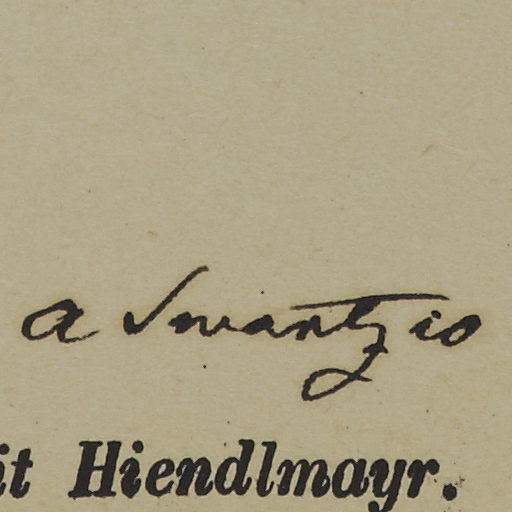 a Swartzio
it Hiendlmayr.